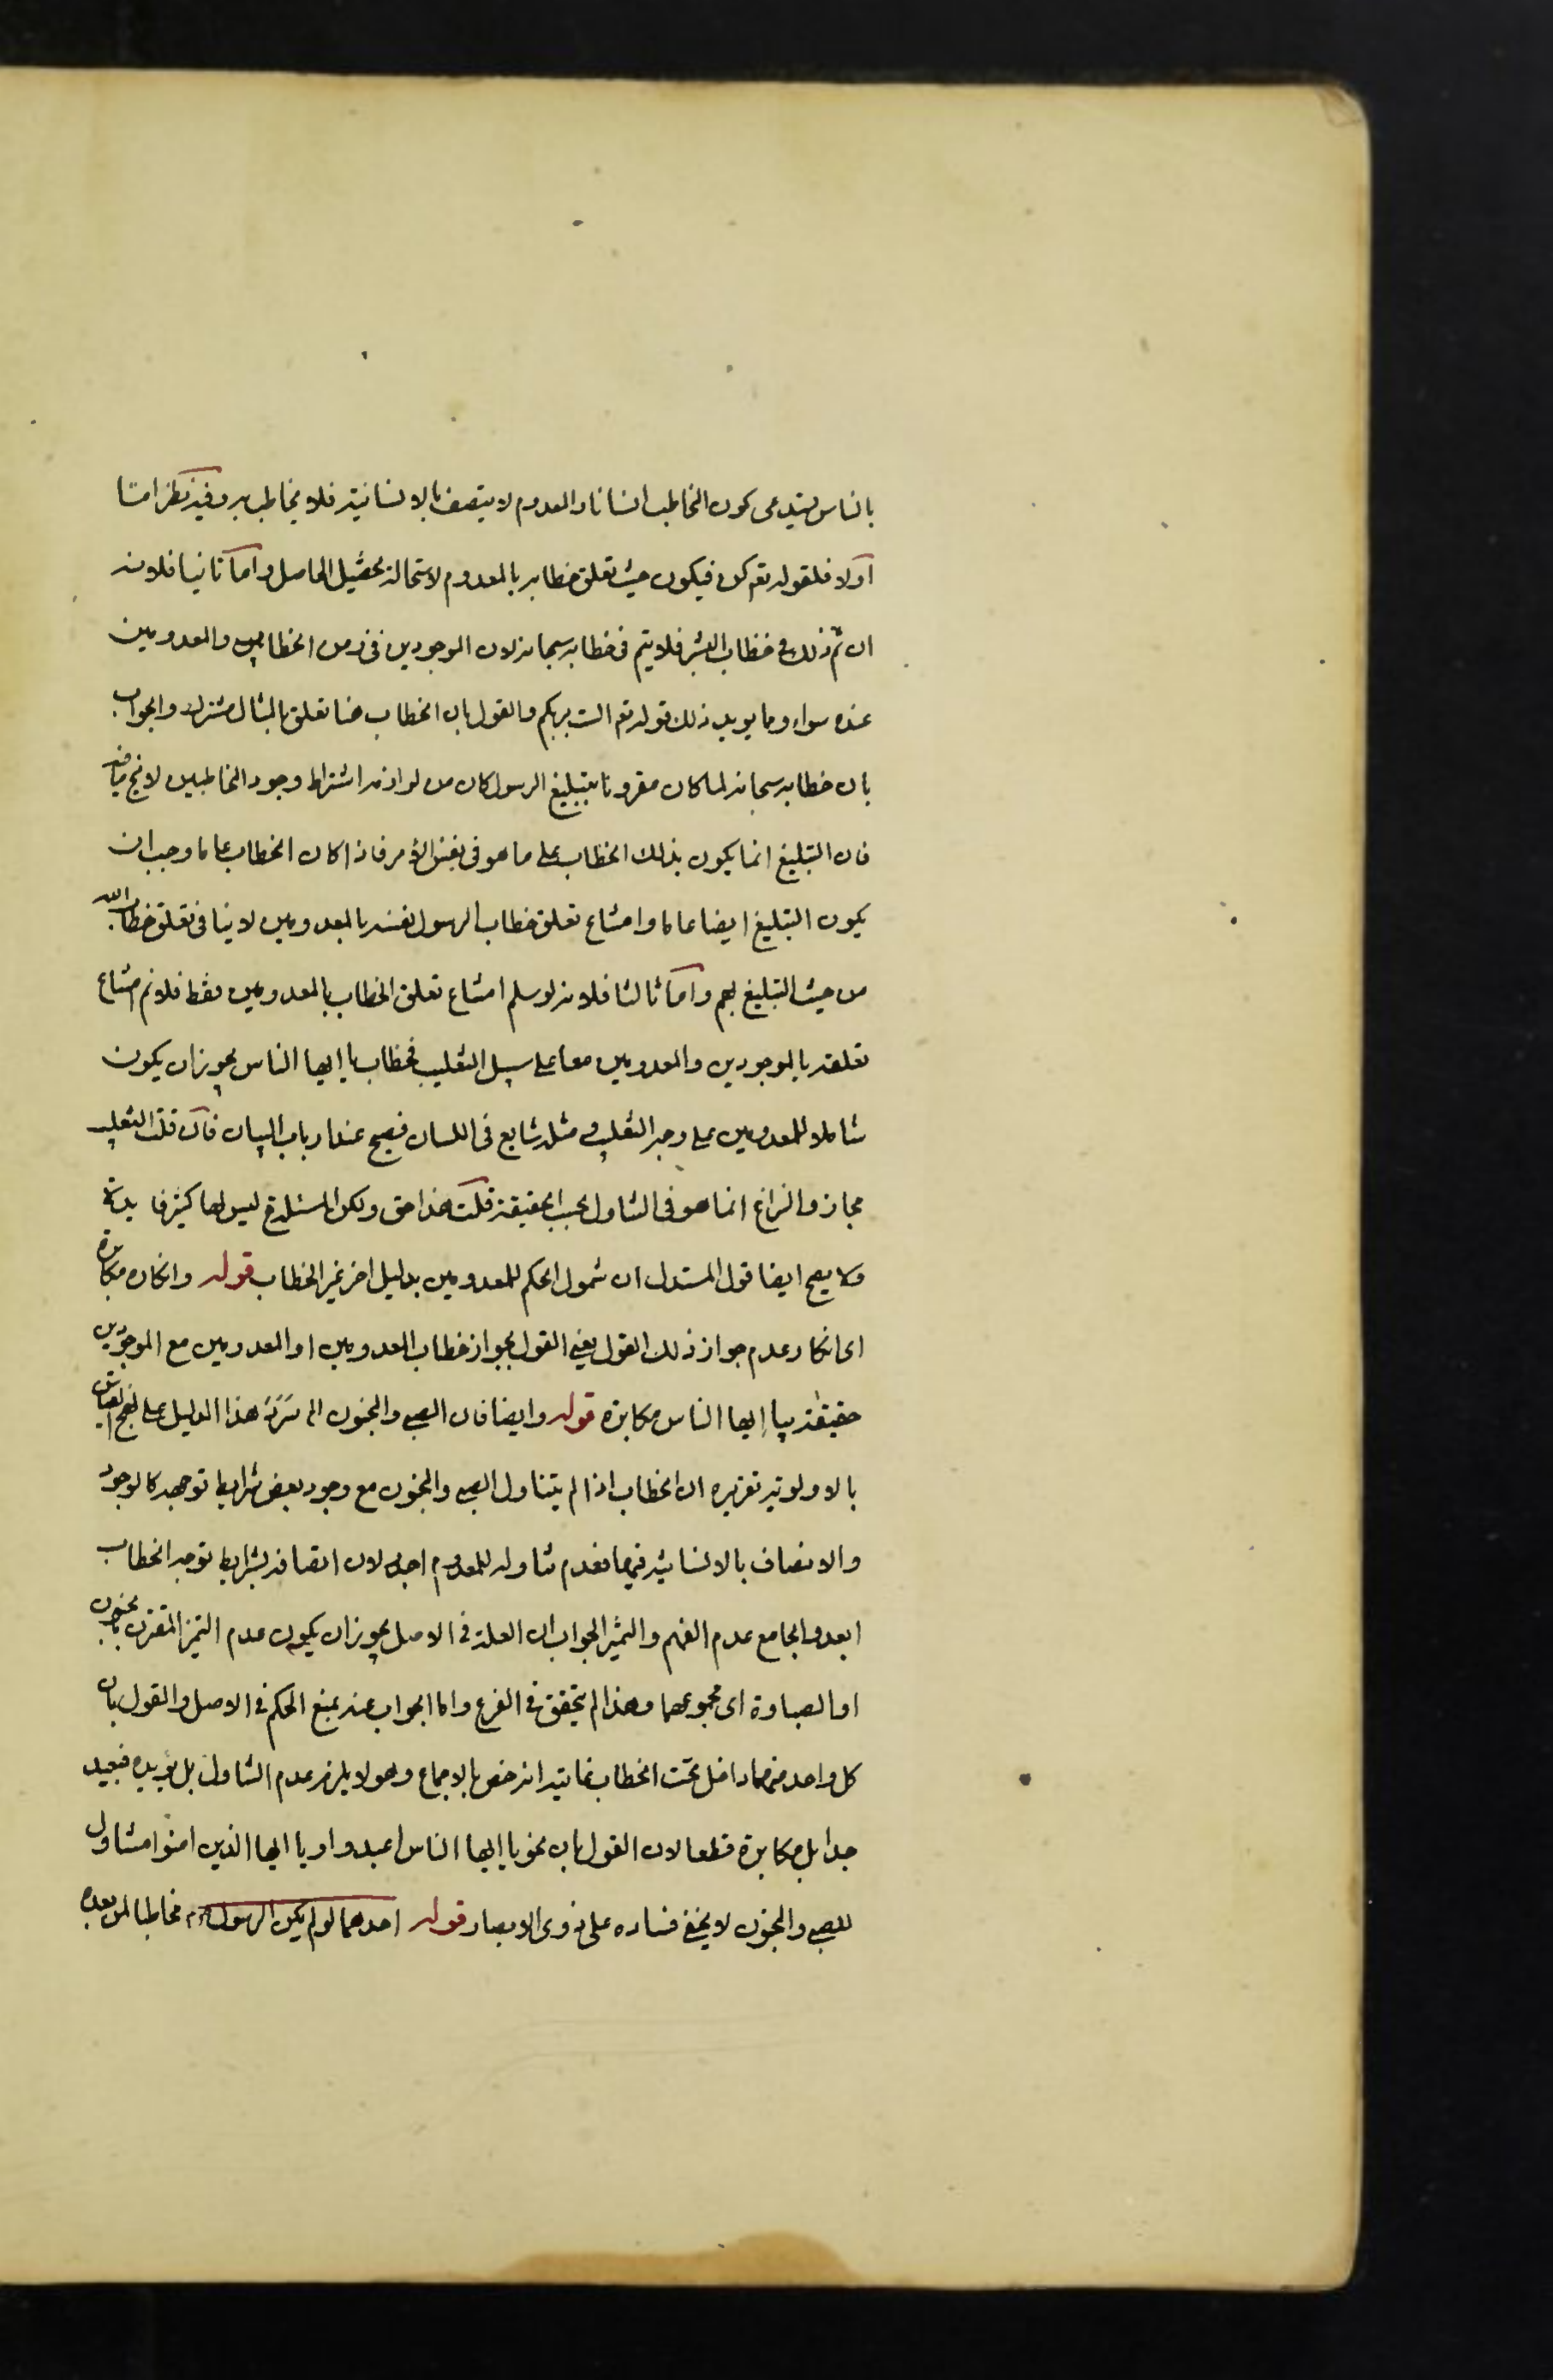 بالناس يستدعى كون المخاطب انسانا والمعدوم لا يتصف بالانسانية فلا يخاطب به وفيه نظر اما
اولا فلقوله تع كن فيكون حيث تعلق خطابه بالمعدوم لاستحالة تحصيل الحاصل واما ثانيا فلانه
ان تم ذلك فى خطاب البشر فلا يتم فى خطابه سبحانه لان الموجودين فى زمن الخطاب والمعدومين
عنده سواء ومما يويد ذلك قوله تع الست بربكم والقول بان الخطاب هنا تعلق بالمثال مشترك والجواب
بان خطابه سبحانه لما كان مقرونا بتبليغ الرسول كان من لوازمه اشتراط وجود المخاطبين لا يخ
فان التبليغ انما يكون بذلك الخطاب على ما هو فى نفس الأمر فاذا كان الخطاب عاما وجب ان
يكون التبليغ ايضا عاما وامتناع تعلق خطاب الرسول نفسه بالمعدومين لا ينافى تعلق خطاب الله
من حيث التبليغ بهم واما ثالثا فلانه لو سلم امتناع تعلق الخطاب بالمعدومين فقط فلا نم امتناع
تعلقه بالموجودين والمعدومين معا على سبيل التغليب فخطاب يا ايها الناس يجوز ان يكون
شاملا للمعدومين على وجه التغليب ومثله شايع فى اللسان فصيح عند ارباب البيان فان قلت التغليب
مجاز والنزاع انما هو فى التناول بحسب الحقيقة قلت هذا حق ولكن المسئلة ح ليس لها كثير فايدة
ولا يصح ايضا قول المستدل ان شمول الحكم للمعدومين بدليل اخر غير الخطاب قوله وانكاره مكابرة
اى انكار عدم جواز ذلك القول يعنى القول بجواز خطاب المعدومين او المعدومين مع الموجودين
حقيقة بيا ايها الناس مكابرة قوله وايضا فان الصبى والمجنون الى هذا الدليل على نهج القياس
بالاولوية تقريره ان الخطاب اذا لم يتناول الصبى والمجنون مع وجود بعض شرايط توجهه كالوجود
والاتصاف بالانسانية فيهما فعدم تناوله للمعدوم اجدر لان اتصافه بشرايط توجه الخطاب
ابعد والجامع عدم الفهم والتميز الجواب ان العلة فى الاصل يجوز ان يكون عدم التميز المقترن بالجنون
او الصباوة اى مجموعهما وهذا لم يتحقق فى الفرع واما الجواب عنه بمنع الحكم فى الاصل والقول بان
كل واحد منهما داخل تحت الخطاب غايته انه خص بالاجماع وهو لا يلزم عدم التناول بل يؤيده فبعيد
جدا بل مكابرة قطعا لان القول بان نحو يا ايها الناس اعبدوا ويا ايها الذين امنوا متناول
للصبى والمجنون لا يخفى فساده على ذوى الابصار قوله احدهما لو لم يكن الرسول مخاطبا لمن بعده